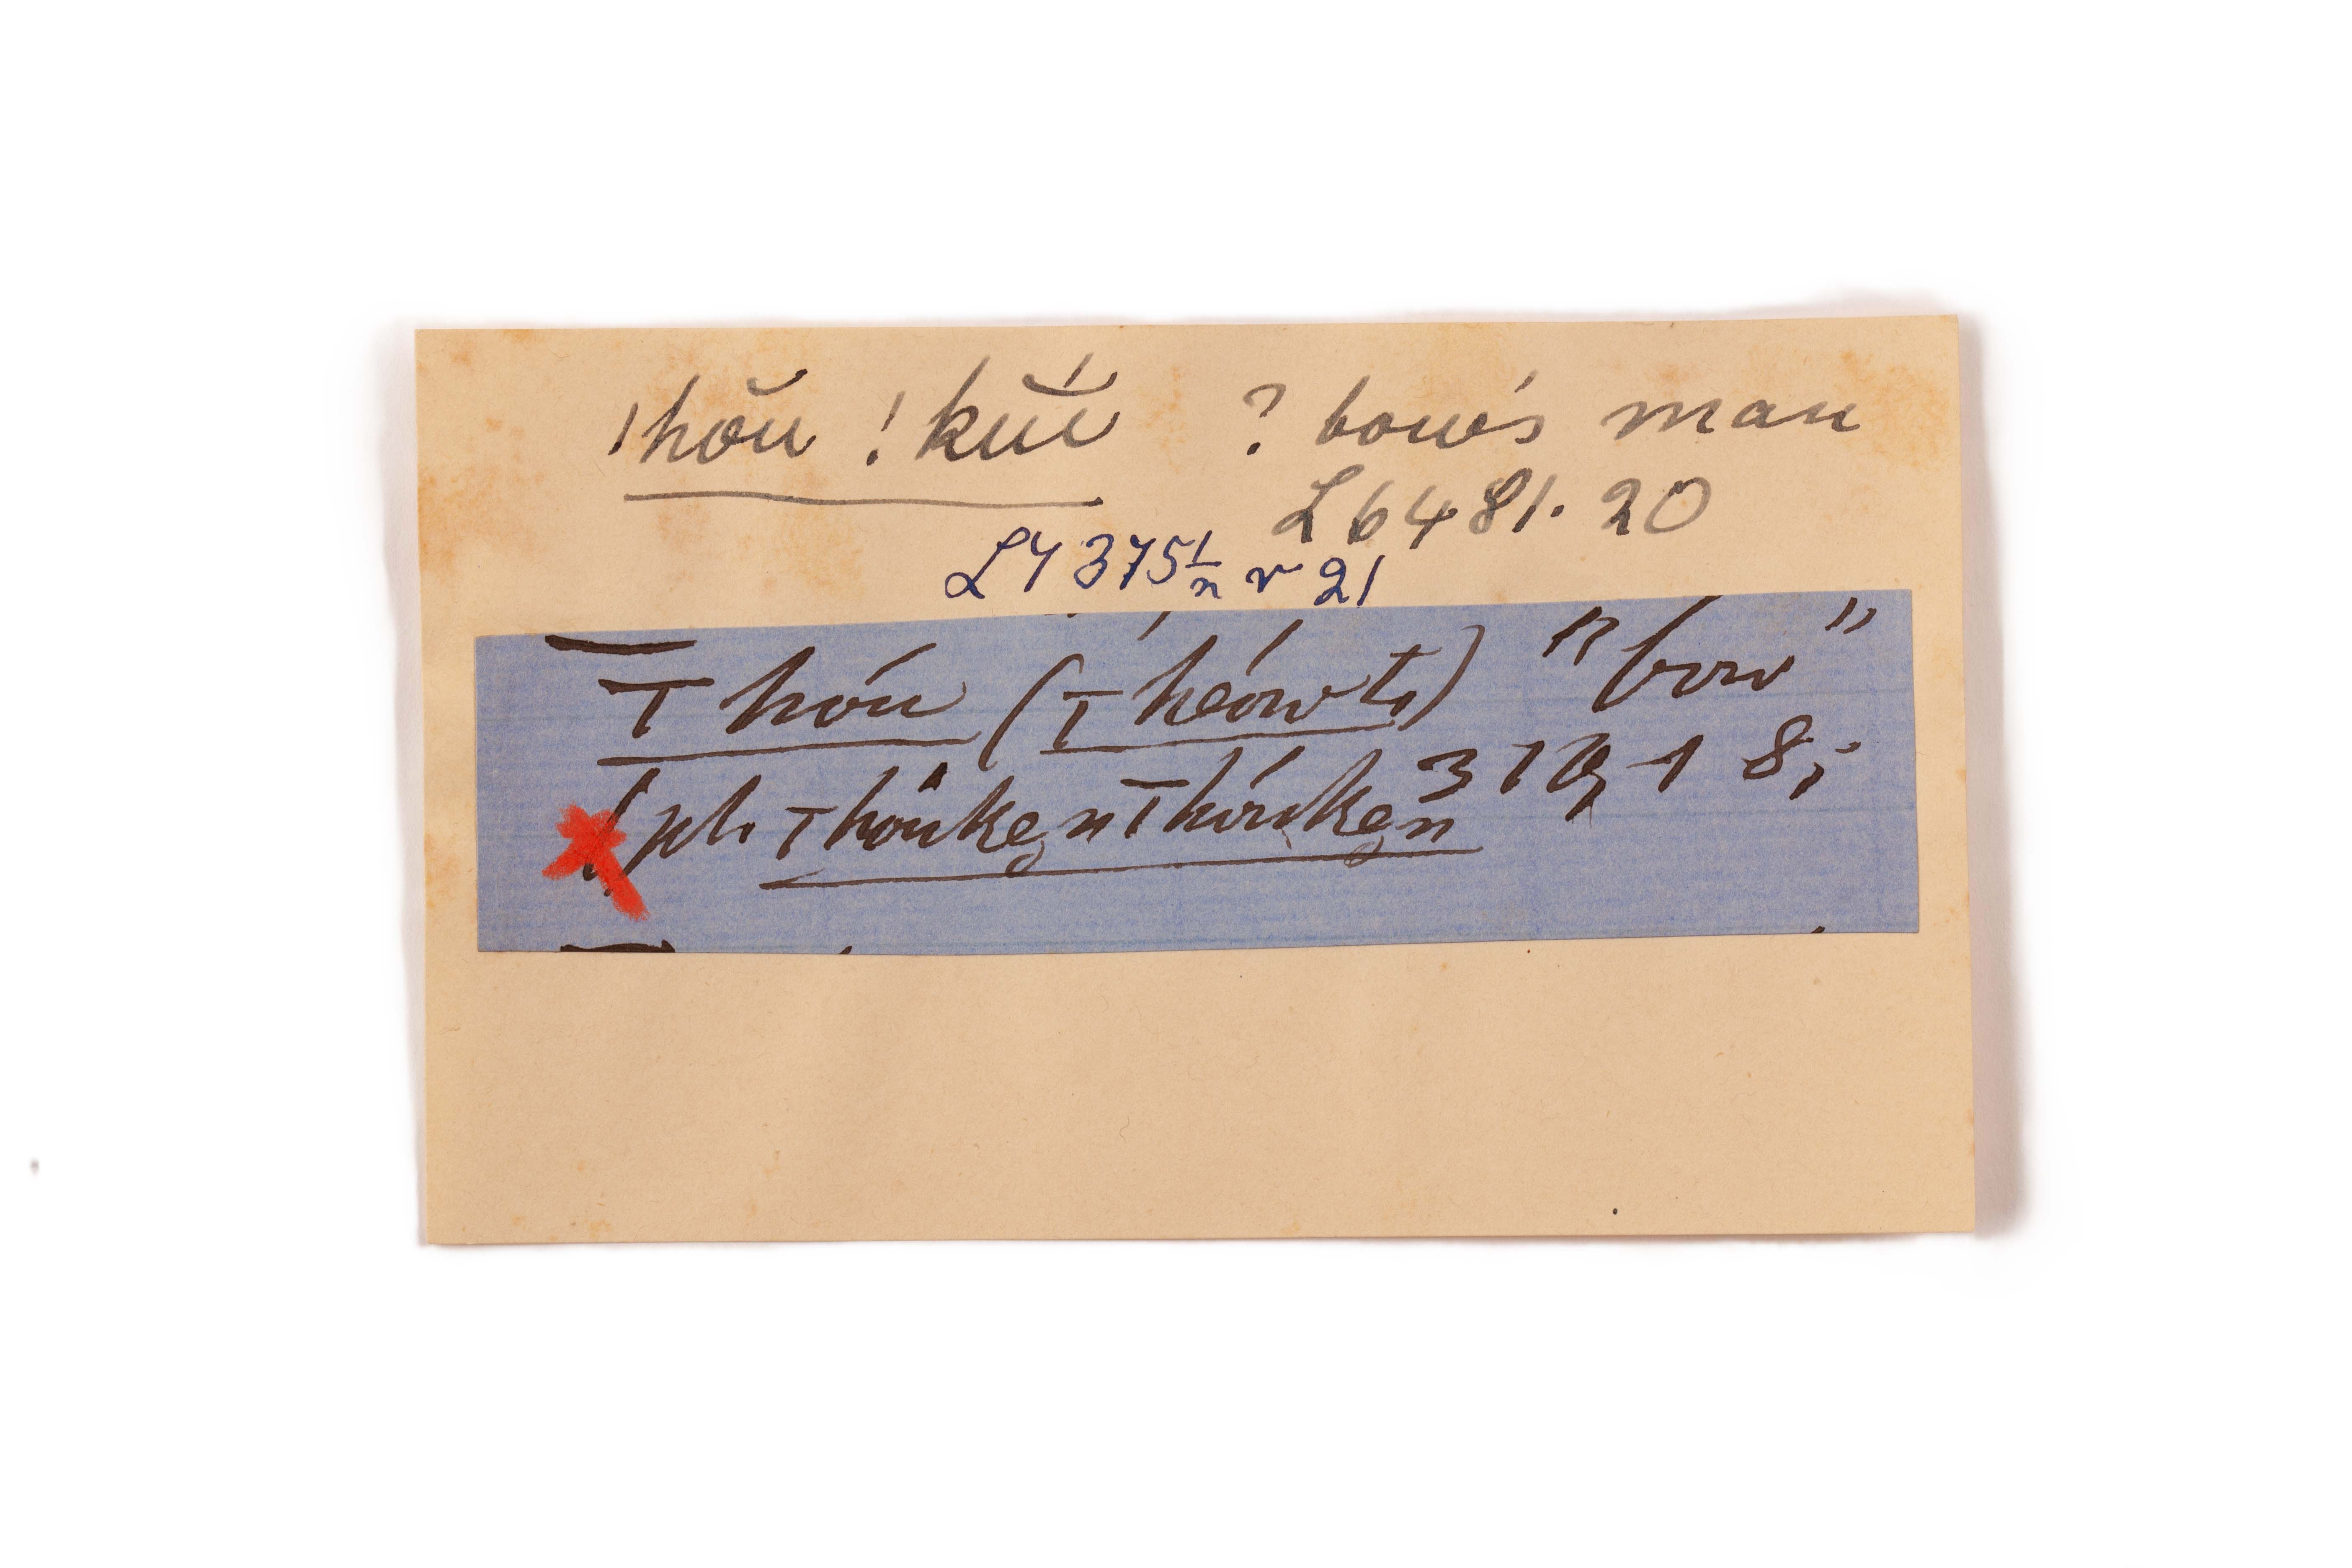 ǀhŏu ! kŭi ? bow's man
L 6481. 20
LY 375½ r 21
T hóu (T héowt.) "bow"
(pl. T hóuken T hóuken 319, 18;